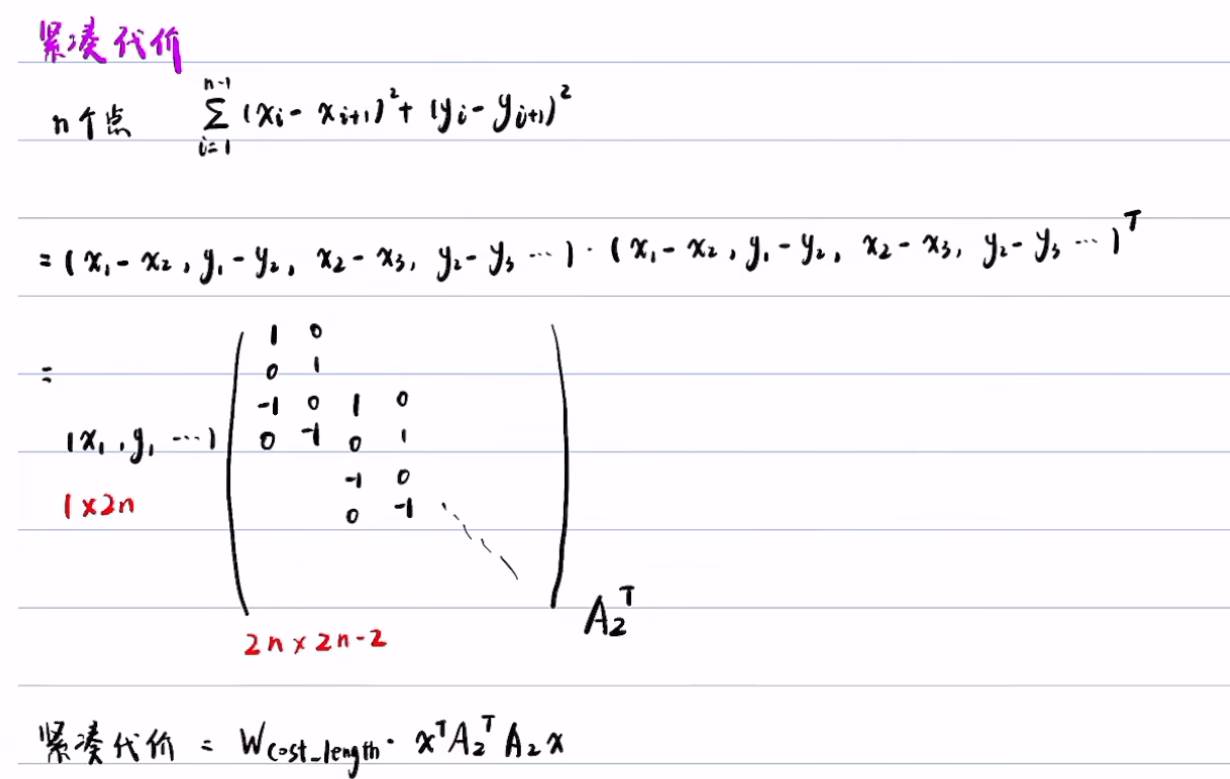 紧凑代价
n个点 \sum_{i=1}^{n-1} (x_i - x_{i+1})^2 + (y_i - y_{i+1})^2
= (x_1 - x_2, y_1 - y_2, x_2 - x_3, y_2 - y_3 ...) · (x_1 - x_2, y_1 - y_2, x_2 - x_3, y_2 - y_3 ...)^T
1 0
= 0 1
-1 0 1 0
(x_1, y_1 ...) 0 -1 0 1
-1 0
1×2n 0 -1
A_2^T
2n × 2n-2
紧凑代价 = W_{cost_length} · x^T A_2^T A_2 x